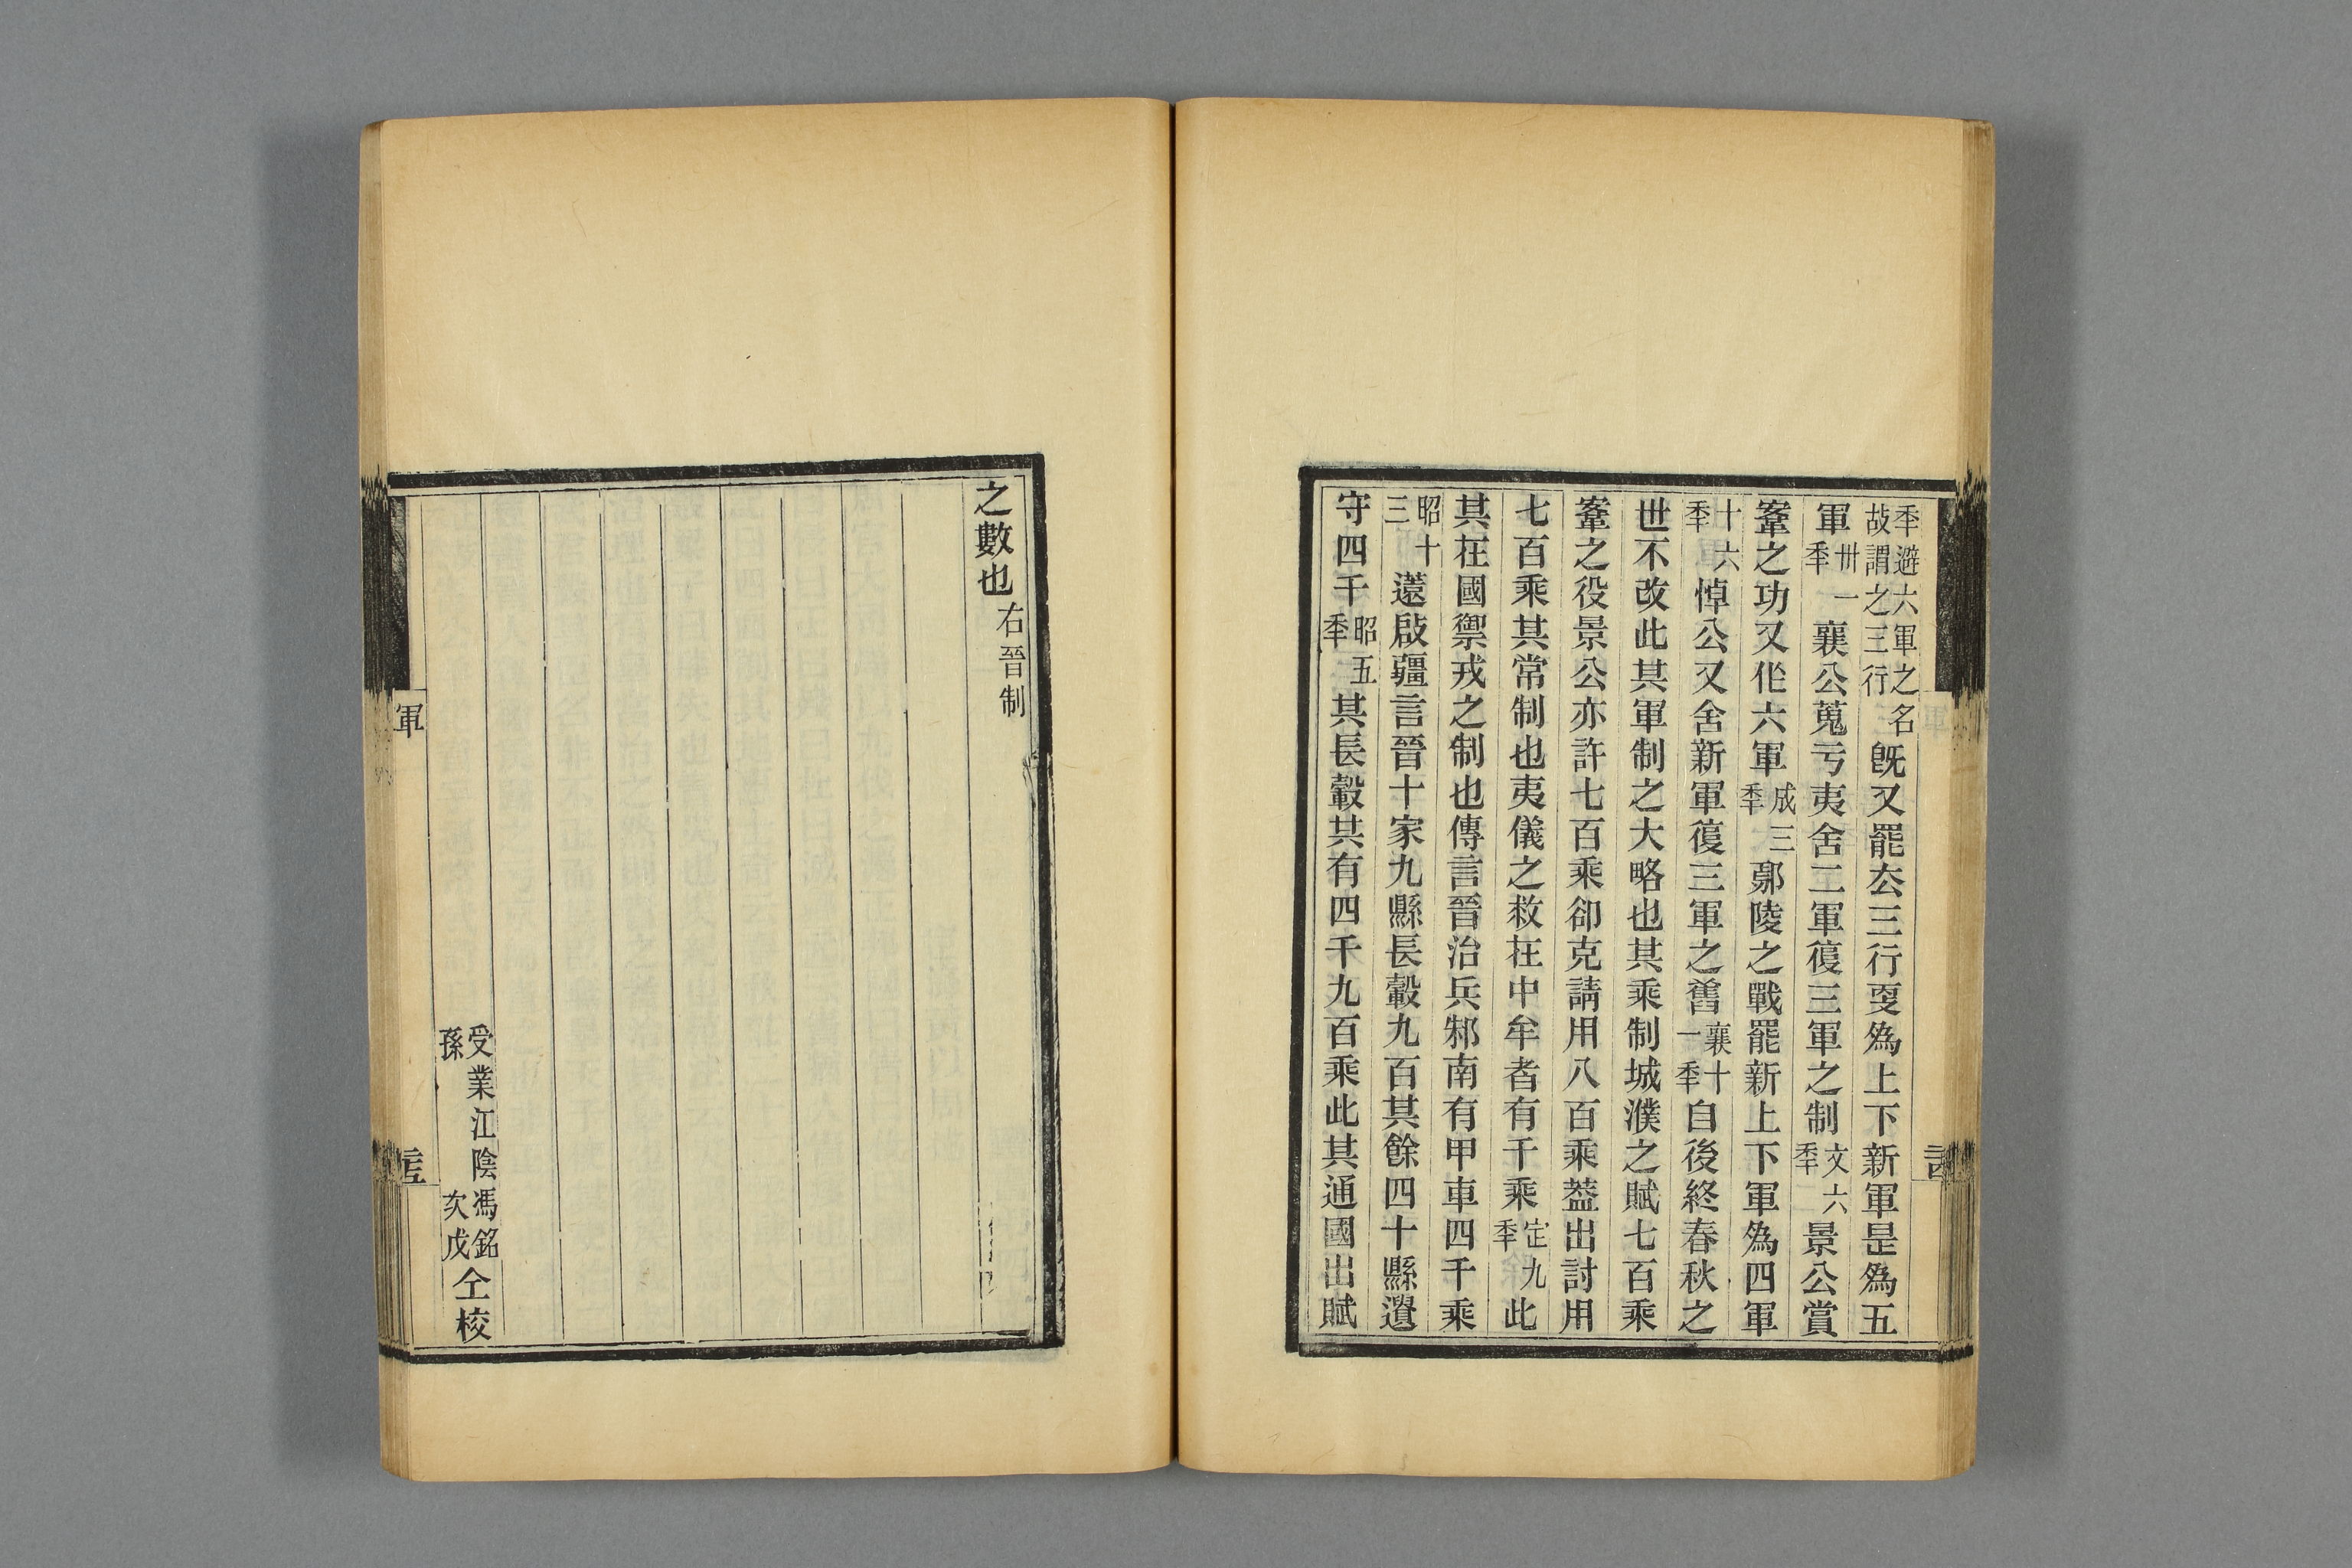 秊避六軍之名故謂之三行旣又罷厺三行㪅爲上下新軍是爲五
軍卅一秊襄公蒐亏夷舍二軍復三軍之制文六秊景公賞
鞌之功又作六軍成三秊鄢陵之戰罷新上下軍爲四軍
十六秊悼公又舍新軍復三軍之舊襄十一秊自後終春秋之
世不改此其軍制之大略也其乘制城濮之賦七百乘
鞌之役景公亦許七百乘卻克請用八百乘葢出討用
七百乘其常制也夷儀之救在中牟者有千乘定九秊此
其在國禦戎之制也傳言晉治兵邾南有甲車四千乘
昭十三薳啟疆言晉十家九縣長轂九百其餘四十縣遺
守四千昭五秊其長轂共有四千九百乘此其通國出賦
之數也右晉制
受業江陰馮銘孫次戊仝校
軍